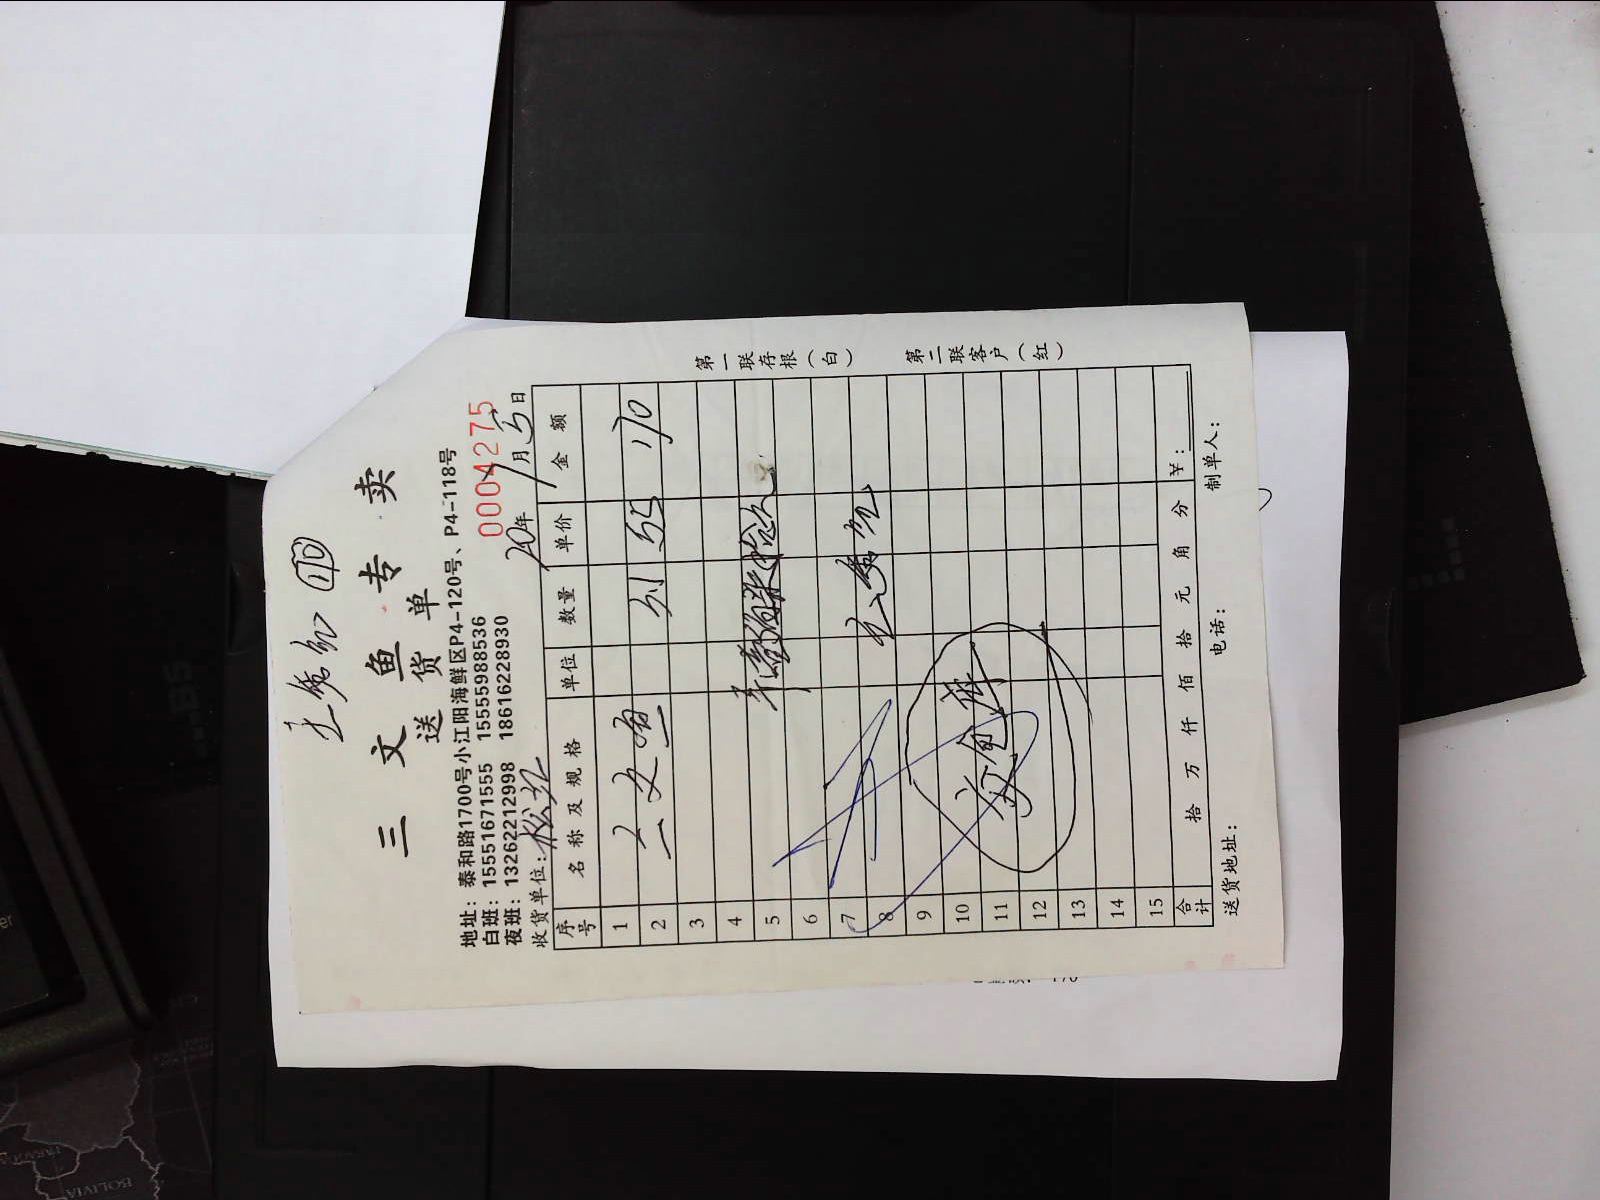 三文鱼专卖
送货单
地址：泰和路1700号小江阳海鲜区P4-120号、P4-118号
白班：15551671555 15555988536
夜班：13262212998 18616228930
0004275
收货单位：松江 20年 月5日
序号 名称及规格 单位 数量 单价 金额
1
2 三文鱼 3.1 55 170
3
4
5
6
7
8
9
10
11
12
13
14
15
合计 拾 万 仟 佰 拾 元 角 分 ¥：
送货地址： 电话： 制单人：
第一联存根（白） 第二联客户（红）
BOLIVIA